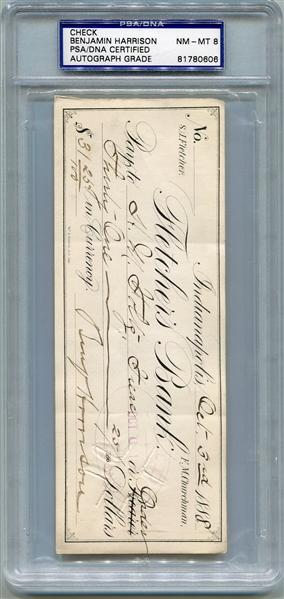 PSA/DNA
CHECK
BENJAMIN HARRISON
PSA/DNA CERTIFIED
AUTOGRAPH GRADE
NM - MT 8
81780606
No.
Indianapolis, Oct 3rd 1888
S.J. Fletcher. F.M. Churchman.
Fletcher's Bank.
Pay to or Order
Thirty One 25/100 Dollars
$31 25/100 in Currency.
Benj Harrison